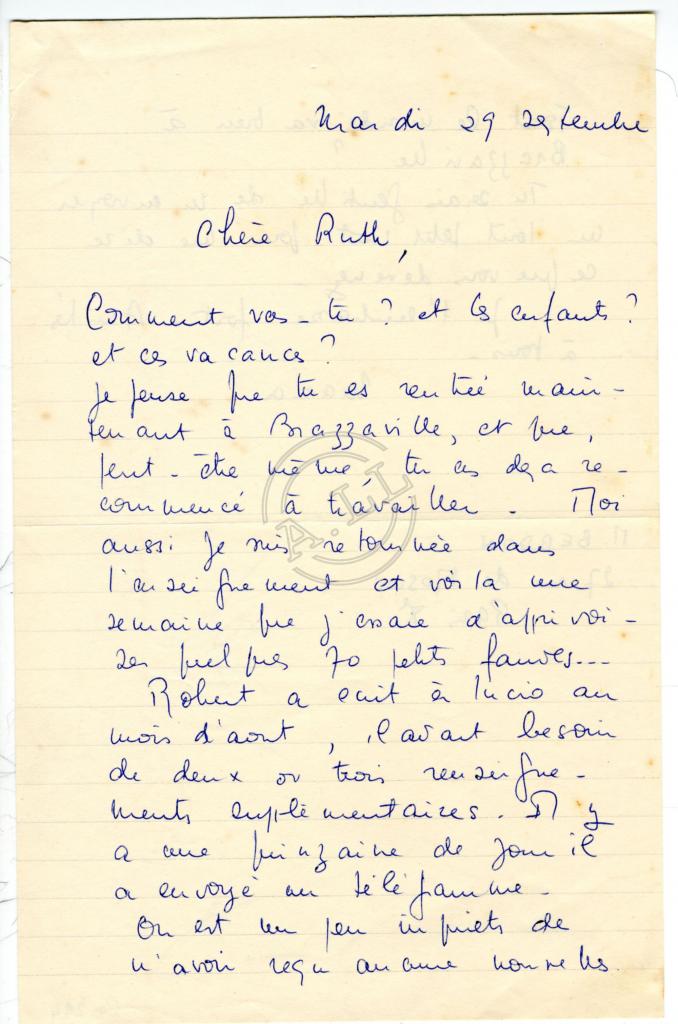 Mardi 29 septembre
Chère Ruth,
Comment vas-tu ? et les enfants ?
et ces vacances ?
Je pense que tu es rentrée main-
tenant à Brazzaville, et que,
peut-être même, tu as deja re-
commencé à travailler. Moi
aussi je suis retournée dans
l'enseignement et voila une
semaine que j'essaie d'apprivoi-
ser quelques 70 petits fauves...
Robert a ecrit à Lucio au
mois d'aout, il avait besoin
de deux ou trois renseigne-
ments supplémentaires. Il y
a une quinzaine de jour il
a envoyé un télégramme.
On est un peu inquiets de
n'avoir reçu aucune nouvelles.
A.LL